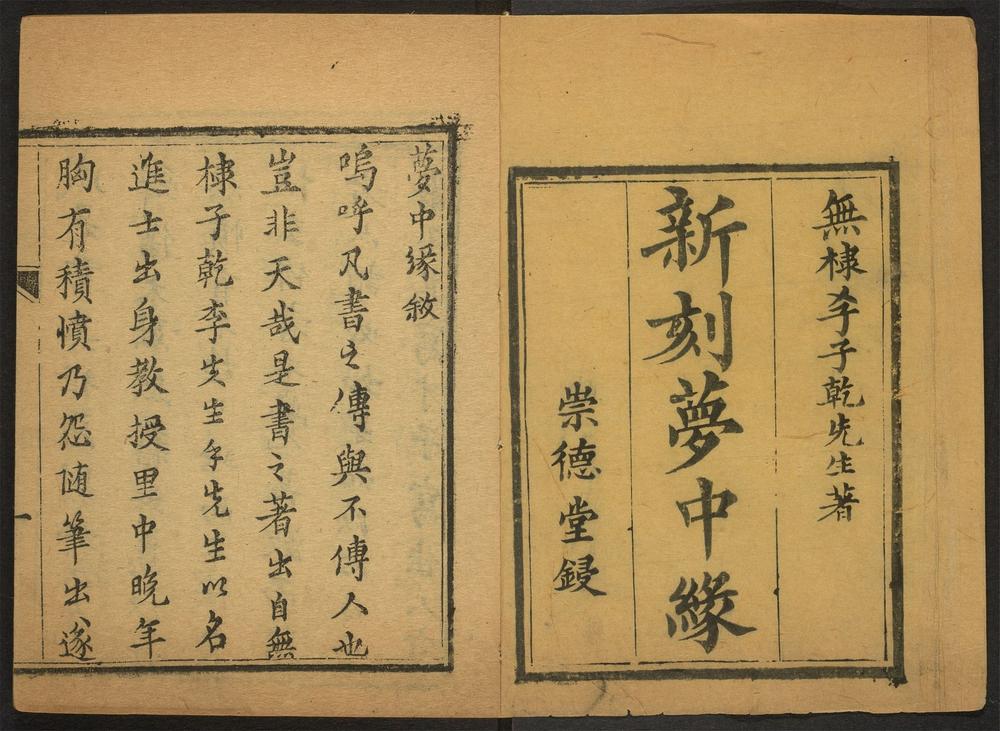 無棣李子乾先生著
新刻夢中緣
崇德堂鋟
夢中緣敘
嗚呼凡書之傳與不傳人也
豈非天哉是書之著出自無
棣子乾李先生乎先生以名
進士出身教授里中晚年
胸有積憤乃怨随筆出遂